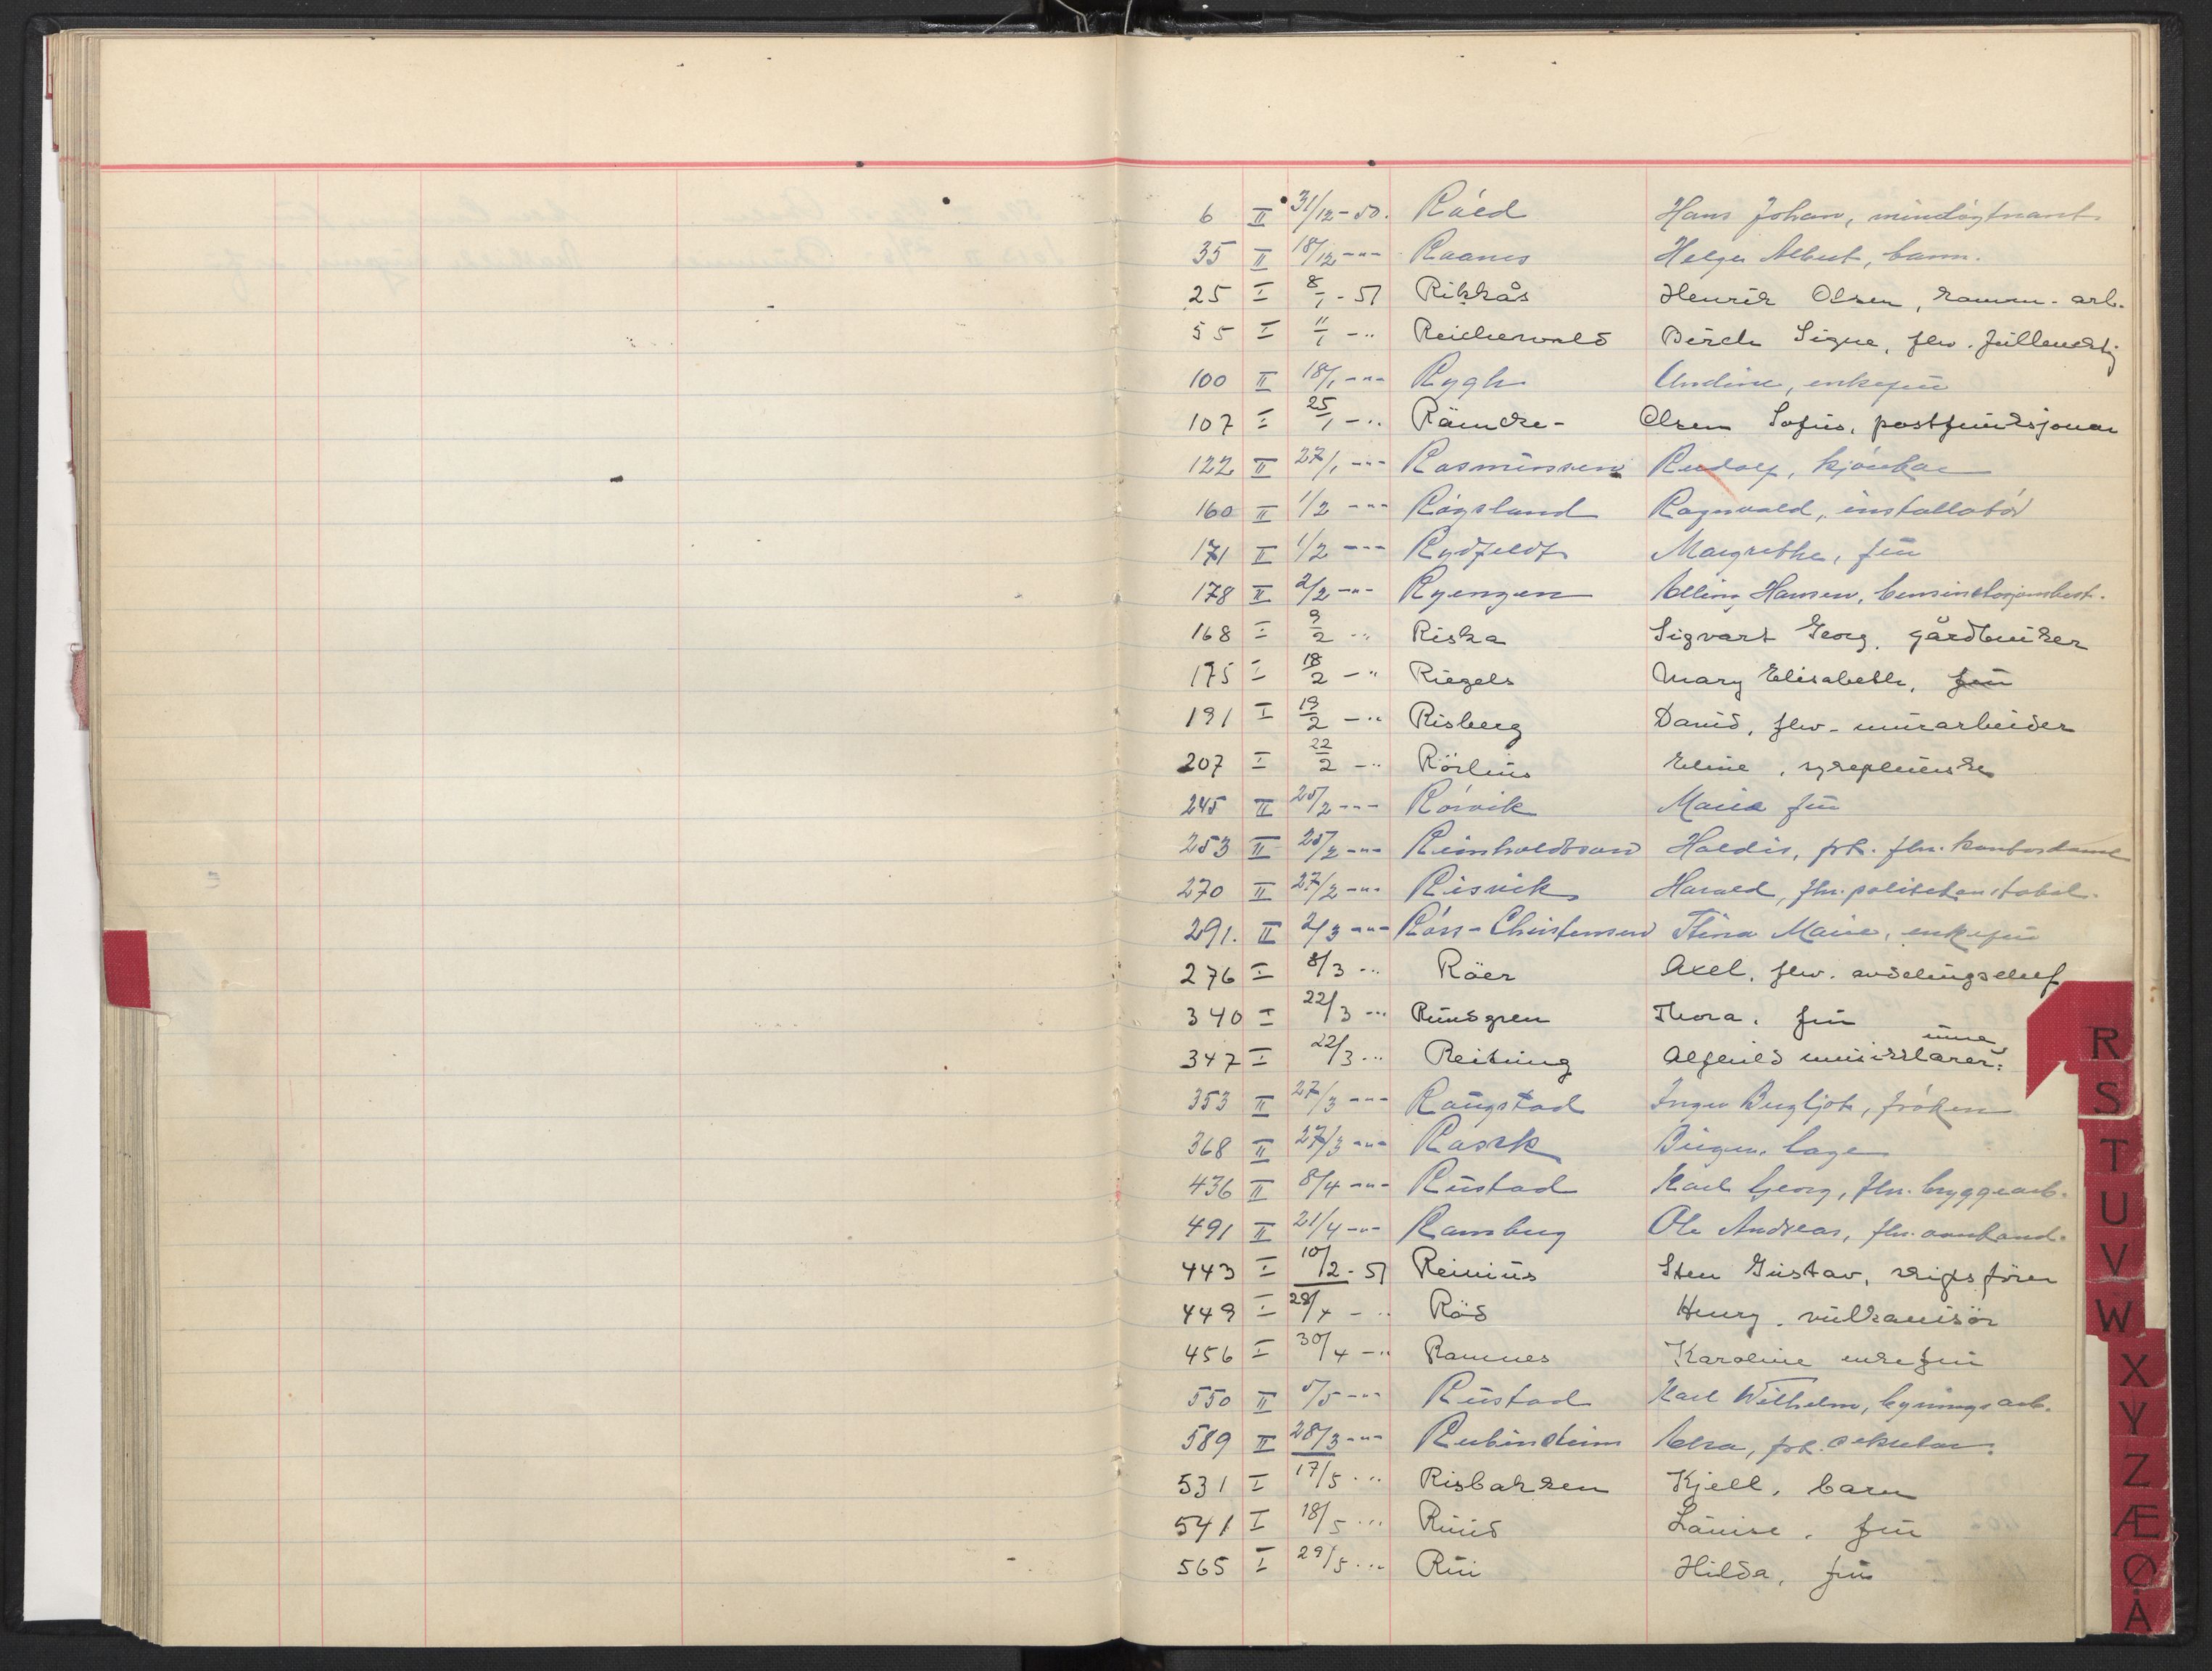 6 II 31/12-50. Röed Hans Johan,
35 II 18/12 -"- Raanes Helge Albert, barn.
25 I 8/1 - 51 Rikkås Henrik Olsen, komm. arb.
55 I 11/1 -" Reichenwald Birch Signe, fhv.
100 II 18/1 -"- Rygh Undine, enkefru
107 I 25/1 -" Räincke- Olsen Sofus, postfunksjonær
122 II 27/1 -"- Rasmussen Rudolf,
160 II 1/2 -"- Rögsland Ragnvald, installatör
171 II 1/2 -"- Rydfeldt Margrethe, fru
178 II 2/2 -"- Ryengen Elling Hansen,
168 I 9/2 -" Riska Sigvart Georg, gårdbruker
175 I 18/2 -" Riegels Mary Elisabeth, fru
191 I 19/2 -" Risberg David, fhv. murarbeider
207 I 22/2 -" Eline, sykepleierske
245 II 25/2 -"- Rörvik Marie fru
253 II 25/2 -"- Reinholdtsen Haldis, frk. fhv. kontordame
270 II 27/2 -"- Risvik Harald, fhv. politikonstabel.
291. II 2/3 -"- Röss-Christensen Stina Marie, enkefru
276 I 8/3 -" Röer Axel, fhv. avdelingschef
340 I 22/3 -" Rundgren Thora, fru
347 I 22/3 -" Reitung Alfhild musikklærer-
inne
353 II 27/3 -"- Raugstad Inger Bergljot, fröken
368 II 27/3 -"- Rasck Birger, lege
436 II 8/4 -"- Rustad Karl Georg, fhv. bryggearb.
491 II 21/4 -"- Ramberg Ole Andreas, fhv.
443 I 10/2 - 51 Reinius Sten Gustav, skipsförer
449 I 28/4 -" Röd Henry, vulkanisör
456 I 30/4 -" Ramnes Karoline enkefru
550 II 5/5 -"- Rustad Karl Wilhelm, bygningsarb.
589 II 28/3 -"- Rubinstein Elsa, frk.
531 I 17/5 -" Risbakken Kjell, barn
541 I 18/5 -" Ruud Louise, fru
565 I 29/5 -" Rui Hilda, fru
R
S
T
U
V
W
X
Y
Z
Æ
Ø
Å